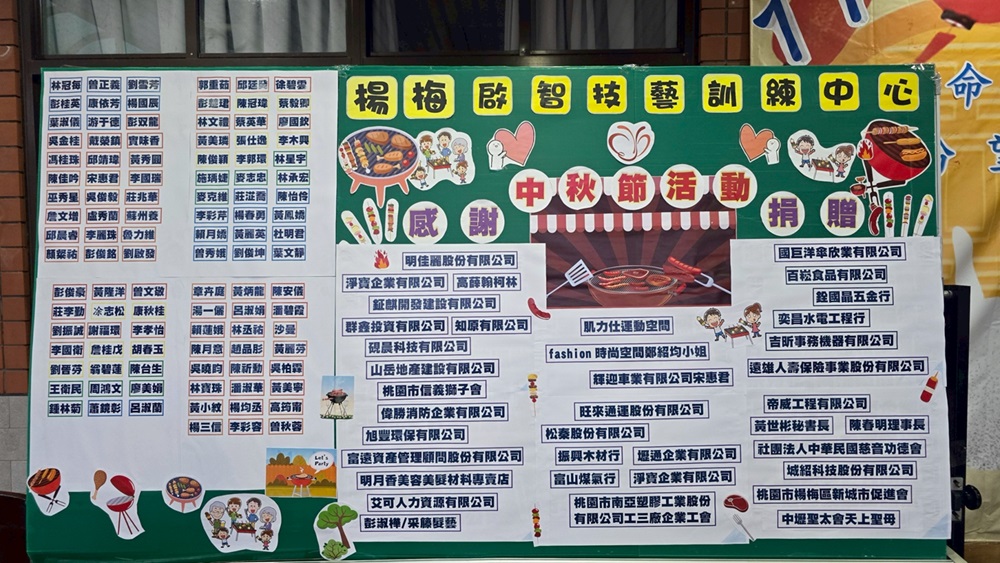 楊梅啟智技藝訓練中心
中秋節活動
感謝
捐贈
林冠每 曾正義 劉雪芳
彭桂英 康依芳 楊國展
葉淑儀 游于德 彭双龍
吳金桂 戴榮鎮 實味香
馮桂珠 邱靖瑋 黃秀圓
陳佳吟 宋惠君 李國瑞
巫秀星 吳俊毅 莊兆華
詹文增 盧秀蘭 蘇州養
邱晨睿 李麗珠 魯力維
顏粲祐 彭俊銘 劉啟發
郭重茹 邱廷 徐碧雲
彭 珺 陳冠瑋 蔡毅卿
林文禮 蔡英華 廖國欽
黃美璌 張仕逸 李木興
陳俊穎 李郭環 林星宇
施瑀婕 麥志忠 林承宏
麥克維 莊涖喬 陳怡伶
李彩芹 楊春勇 黃鳳嬌
賴月嬌 黃麗英 杜明君
曾秀娥 劉俊坤 葉文靜
彭俊豪 黃隆洋 曾文敬
莊李勤 凃志松 康秋桂
劉振誠 謝福環 李孝怡
李國衛 詹桂戊 胡春玉
劉晉芬 翁碧蓮 陳台生
王衛民 周鴻文 廖美娟
鍾林菊 蕭鏡彰 呂淑蘭
章卉庭 黃炳龍 陳安儀
湯一儷 呂淑娟 潘碧霞
賴蓮娥 林丞祐 沙曼
陳月意 趙品彤 黃麗芬
吳曉昀 陳祈勳 吳柏霖
林寶珠 蕭淑華 黃美寧
黃小紋 楊均丞 高筠甯
楊三信 李彩容 曾秋蓉
Let's
Party
明佳麗股份有限公司
淨寶企業有限公司 高薛翰柯林
鉦麒開發建設有限公司
群鑫投資有限公司 知原有限公司
硯晨科技有限公司
山岳地產建設有限公司
桃園市信義獅子會
偉勝消防企業有限公司
旭豐環保有限公司
富遠資產管理顧問股份有限公司
明月香美容美髮材料專賣店
艾可人力資源有限公司
彭淑樺/采籐髮藝
肌力仕運動空間
fashion 時尚空間鄭紹均小姐
輝迎車業有限公司宋惠君
旺來通運股份有限公司
松秦股份有限公司
振興木材行 壢通企業有限公司
富山煤氣行 淨寶企業有限公司
桃園市南亞塑膠工業股份
有限公司工三廠企業工會
國巨洋傘欣業有限公司
百崧食品有限公司
銓國晶五金行
奕昌水電工程行
吉昕事務機器有限公司
遠雄人壽保險事業股份有限公司
帝威工程有限公司
黃世彬秘書長 陳春明理事長
社團法人中華民國慈音功德會
城紹科技股份有限公司
桃園市楊梅區新城市促進會
中壢聖太會天上聖母
命